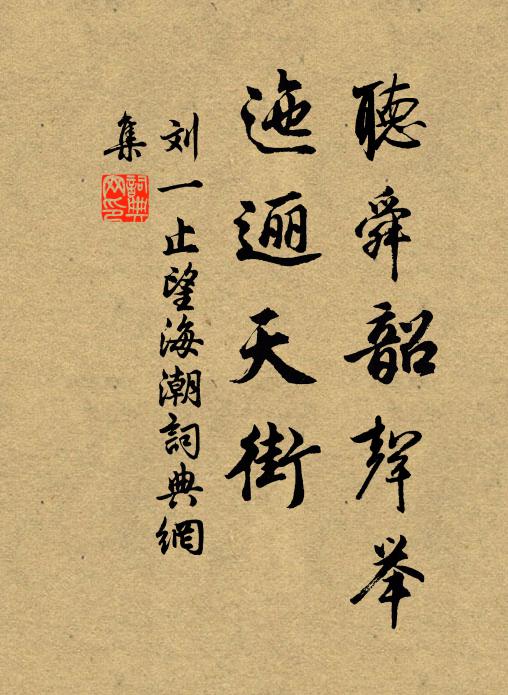 聽舜韶聲举
迤逦天街
刘一止望海潮詞典網
集
詞典网印